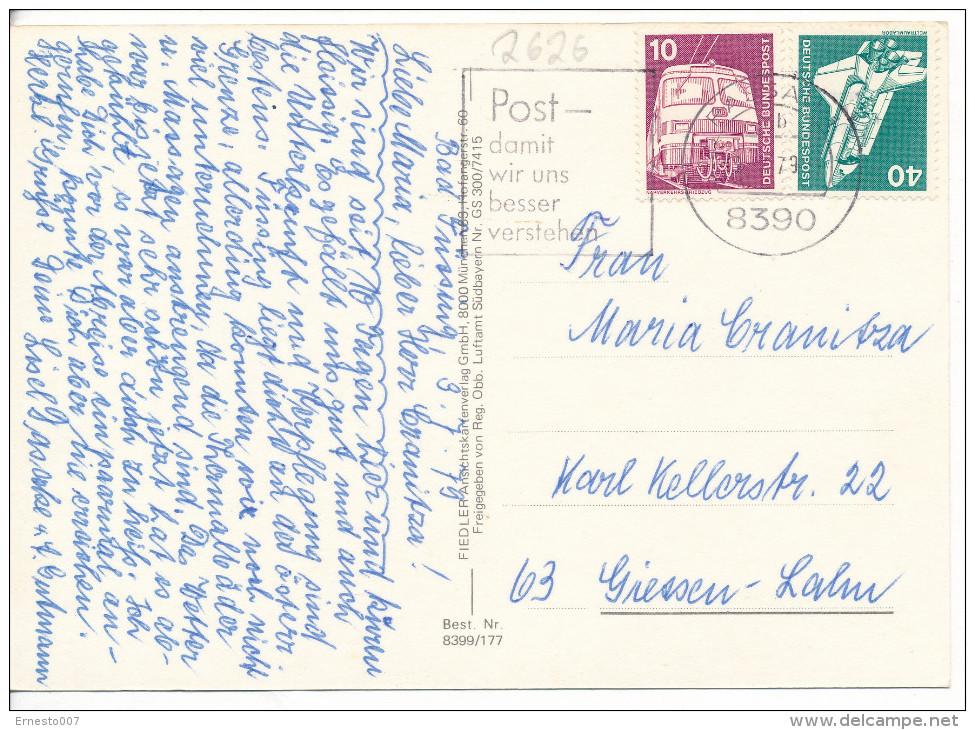 2626
Post—
damit
wir uns
besser
verstehen
10
DEUTSCHE BUNDESPOST
NAHVERKEHRS-TRIEBZUG
DEUTSCHE BUNDESPOST
WELTRAUMLABOR
40
PASSAU
b
79
8390
Frau
Maria Cranitza
Karl Kellerstr. 22
63 Giessen-Lahn
Bad Füssing, 9.
Liebe Mama, lieber Herr Cranitza!
Wir sind seit 10 Tagen hier und kuren
fleissig. Es gefällt uns gut und auch
die Unterkunft und Verpflegung sind
bestens. Füssing liegt dicht an der österr.
Grenze, allerdings konnten wir noch nicht
viel unternehmen, da die Thermalbäder
u. Massagen anstrengend sind. Das Wetter
war bis jetzt sehr schön, jetzt hat es ab-
gekühlt, es war aber auch zu heiß. Ich
habe Dich vor der Abreise ein paarmal an-
gerufen, konnte Dich aber nie erreichen.
Herzl. Grüsse Deine Liesel
FIEDLER-Ansichtskartenverlag GmbH, 8000 München 83, Hofangerstr. 60
Freigegeben von Reg. Obb. Luftamt Südbayern Nr. GS 300/7415
Best. Nr.
8399/177
Ernesto007
delcampe.net